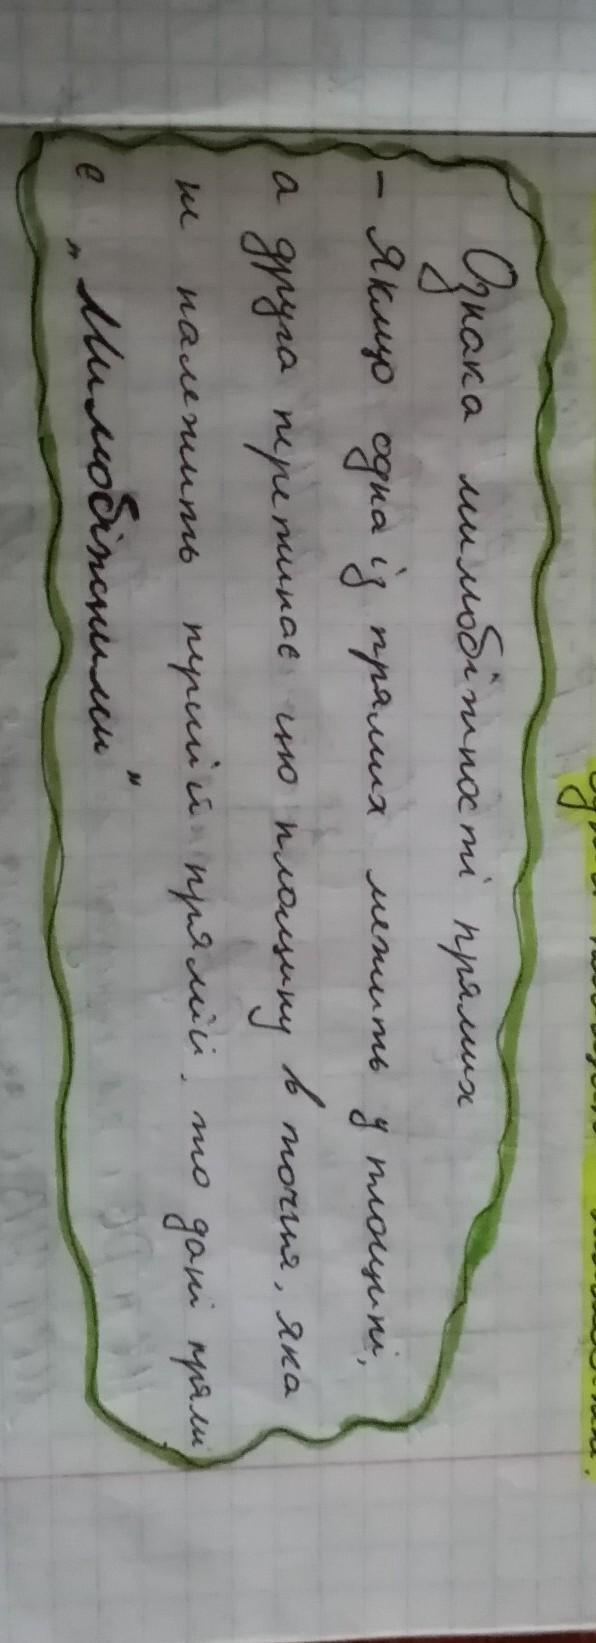 Ознака мимобіжності прямих
- Якщо одна із прямих лежить у площині,
а друга перетинає цю площину в точці, яка
не належить першій прямій, то дані прямі
є „Мимобіжними"